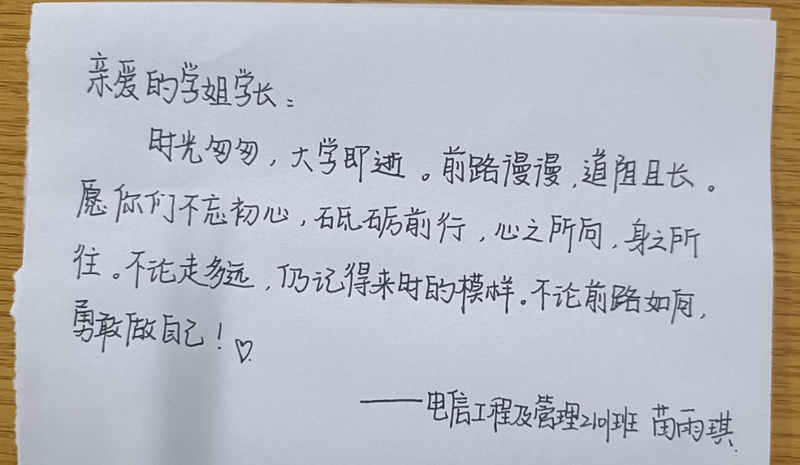 亲爱的学姐学长：
时光匆匆，大学即逝。前路漫漫，道阻且长。
愿你们不忘初心，砥砺前行，心之所向，身之所
往。不论走多远，仍记得来时的模样。不论前路如何，
勇敢做自己！♡
——电信工程及管理2101班 苗雨琪